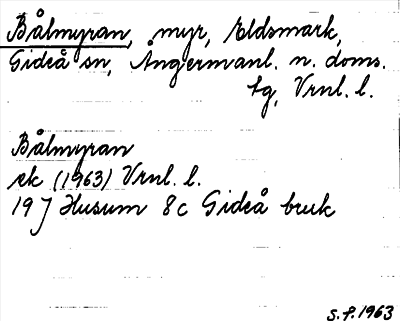 Bålmyran, myr, Eldsmark,
Gideå sn, Ångermanl. n. doms.
tg, Vrnl. l.
Bålmyran
ek (1963) Vrnl. l.
19 J Husum 8c Gideå bruk
S.F. 1963